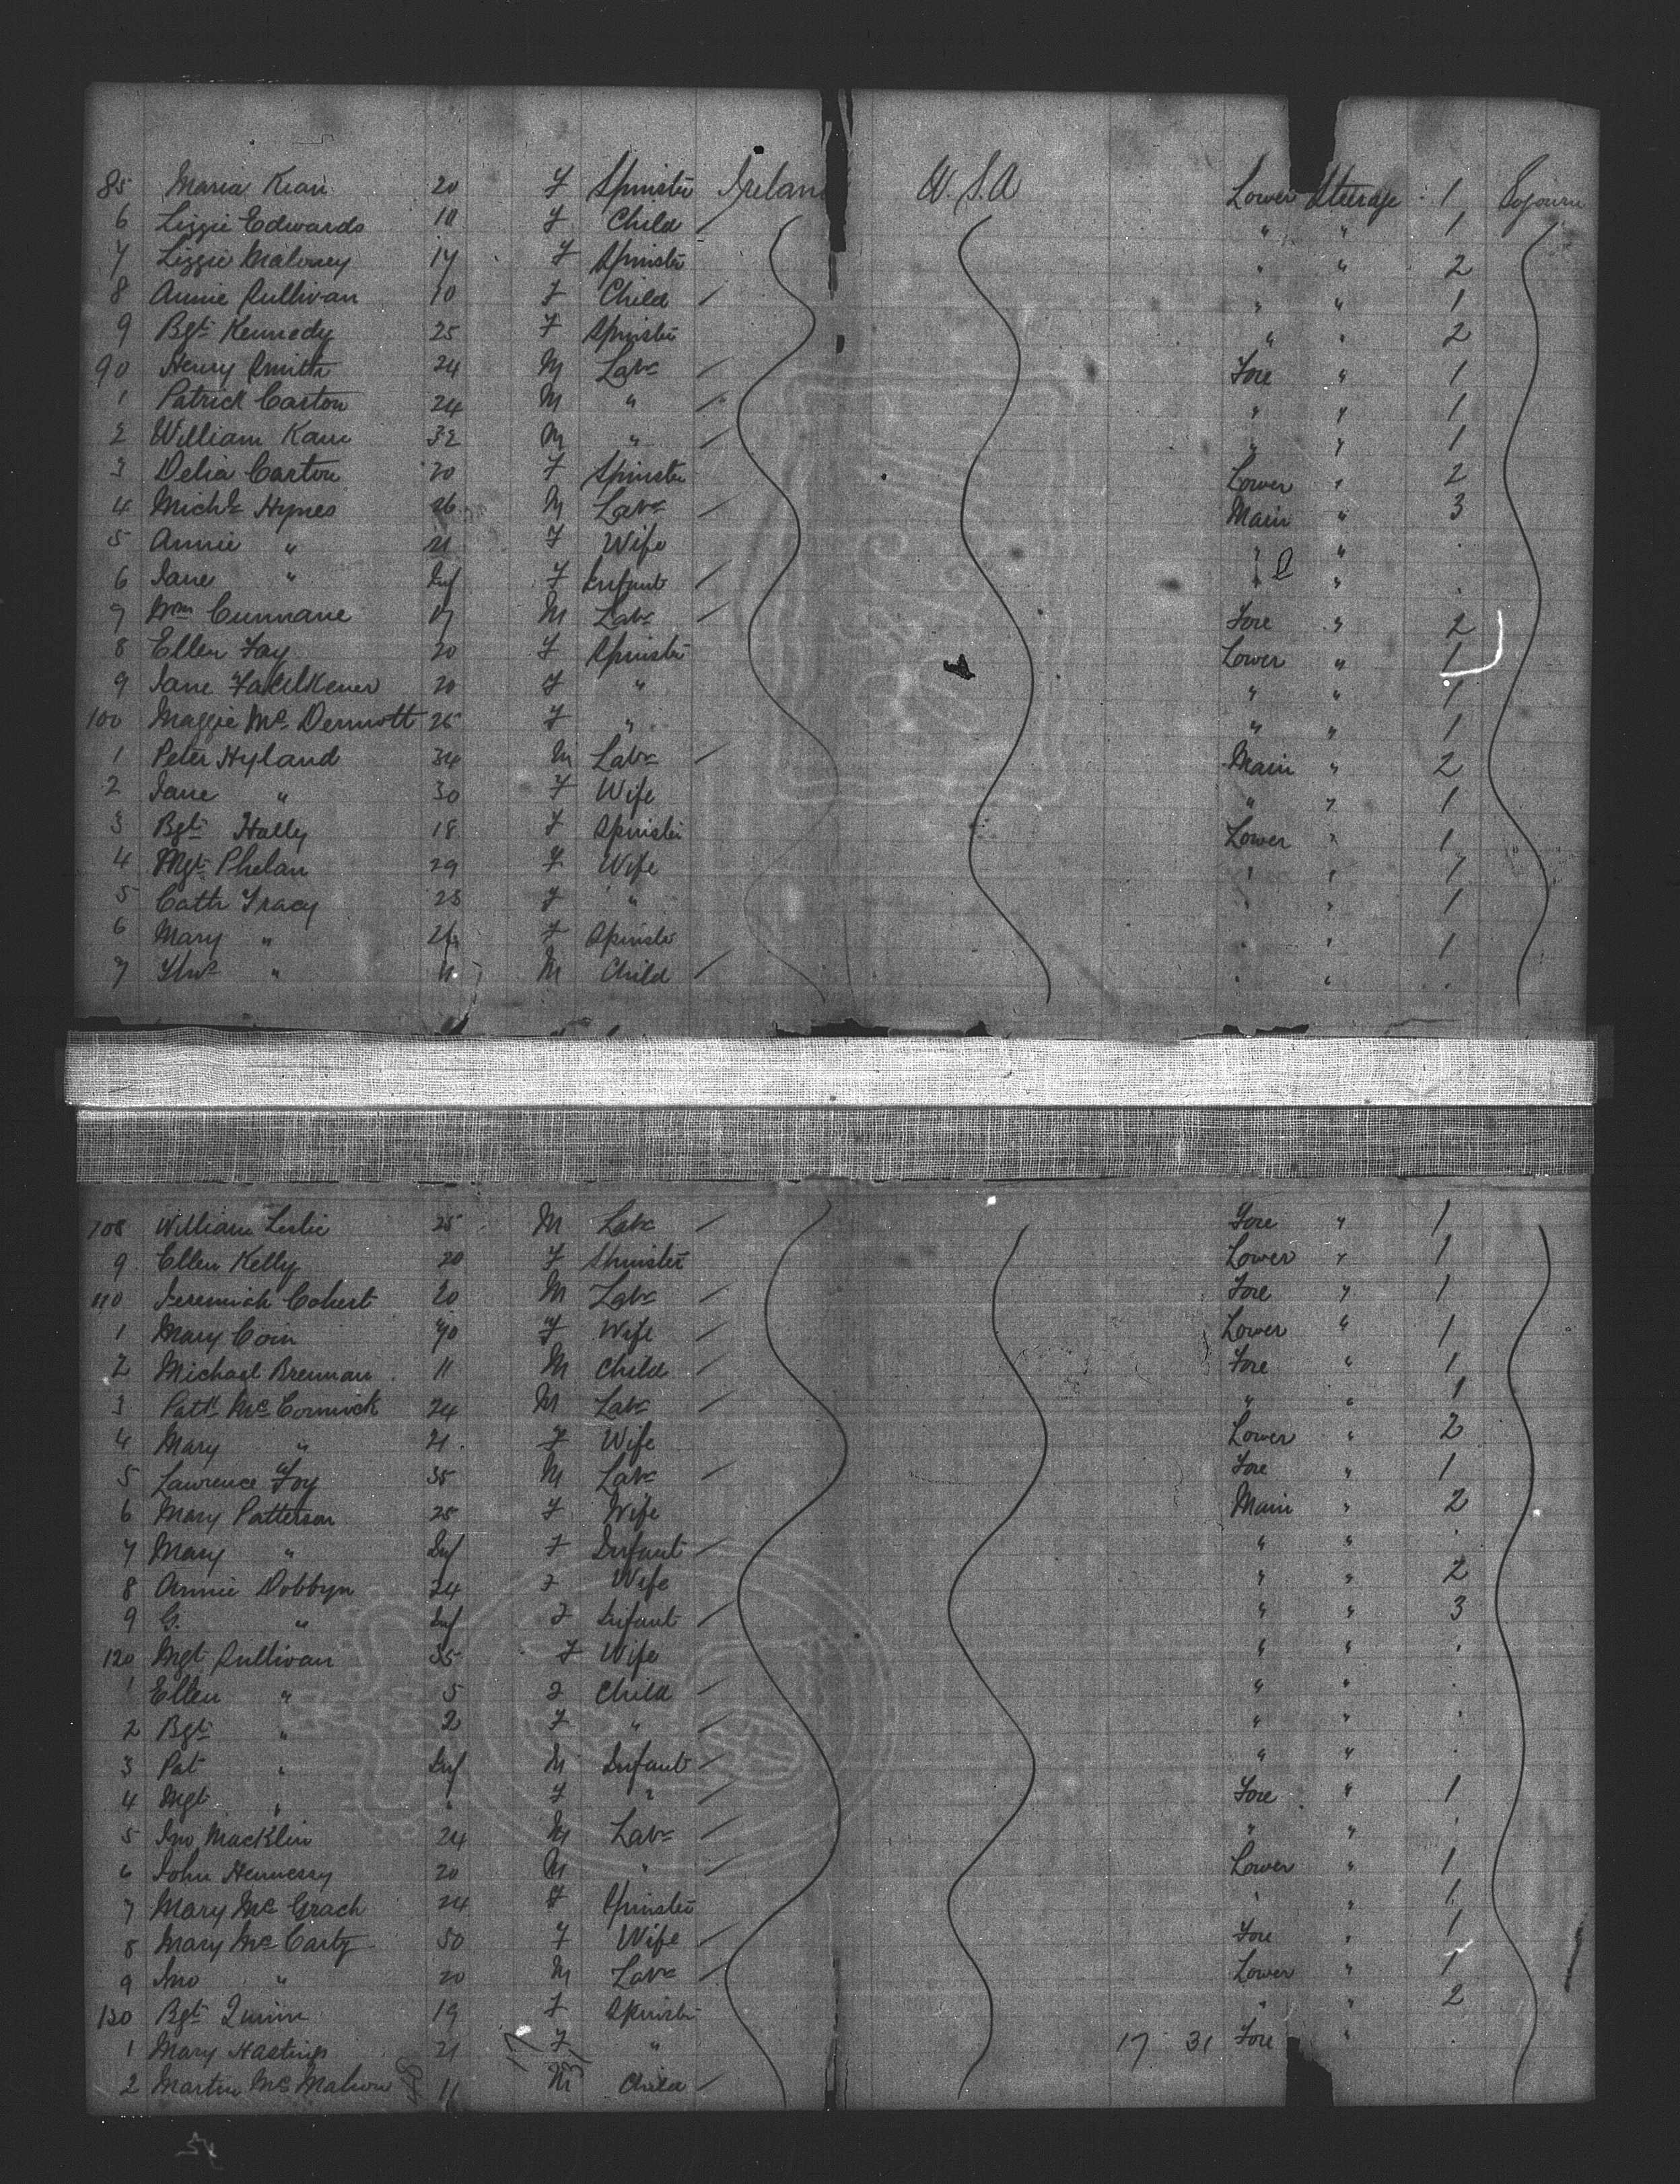 85 Maria Kean 20 F Spinster Ireland U.S.A Lower Steerage 1 Sojourn
6 Lizzie Edwards 10 F Child / " " 1
7 Lizzie Maloney 17 F Spinster " " 2
8 Annie Sullivan 10 F Child / " " 1
9 Bgt Kennedy 25 F Spinster " " 2
90 Henry Smith 24 M Labr / Fore " 1
1 Patrick Carton 24 M " / " " 1
2 William Kane 32 M " / " " 1
3 Delia Carton 20 F Spinster Lower " 2
4 Michl Hynes 26 M Labr / Main " 3
5 Annie " 21 F Wife " "
6 Jane " Inf F Infant / " "
7 Wm Cunnane 17 M Labr / Fore " 2
8 Ellen Fay 20 F Spinster Lower " 1
9 Jane Faulkener 20 F " " " 1
100 Maggie Mc Dermott 25 F " " " 1
1 Peter Hyland 34 M Labr / Main " 2
2 Jane " 30 F Wife " " 1
3 Bgt Hally 18 F Spinster Lower " 1
4 Mgt Phelan 29 F Wife " " 1
5 Cath Tracy 25 F " " " 1
6 Mary " F Spinster " " 1
7 Thos " 11 M Child / " "
108 William Leslie 25 M Labr / Fore " 1
9 Ellen Kelly 20 F Spinster Lower " 1
110 Jeremiah 20 M Labr / Fore " 1
1 Mary Coin 40 F Wife / Lower " 1
2 Michael Brennan 11 M Child / Fore " 1
3 Patk McCormick 24 M Labr / " " 1
4 Mary " 21 F Wife Lower " 2
5 Lawrence Foy 35 M Labr / Fore " 1
6 Mary Patterson 25 F Wife Main " 2
7 Mary " Inf F Infant / " "
8 Annie Dobbyn 24 F Wife " " 2
9 G. " Inf F Infant / " " 3
120 Mgt Sullivan 35 F Wife " "
1 Ellen " 5 F Child / " "
2 Bgt " 2 F " / " "
3 Pat " Inf M Infant / " "
4 Mgt " " F " / Fore " 1
5 Jno Macklin 24 M Labr / " "
6 John Hennessy 20 M " / Lower " 1
7 Mary Mc Grach 24 F Spinster " " 1
8 Mary Mc Carty 50 F Wife / Fore " 1
9 Jno " 20 M Labr / Lower " 1
130 Bgt Quinn 19 F Spinster " " 2
1 Mary Hastings 21 F " 17 31 Fore "
2 Martin Mc Mahon 11 M Child /